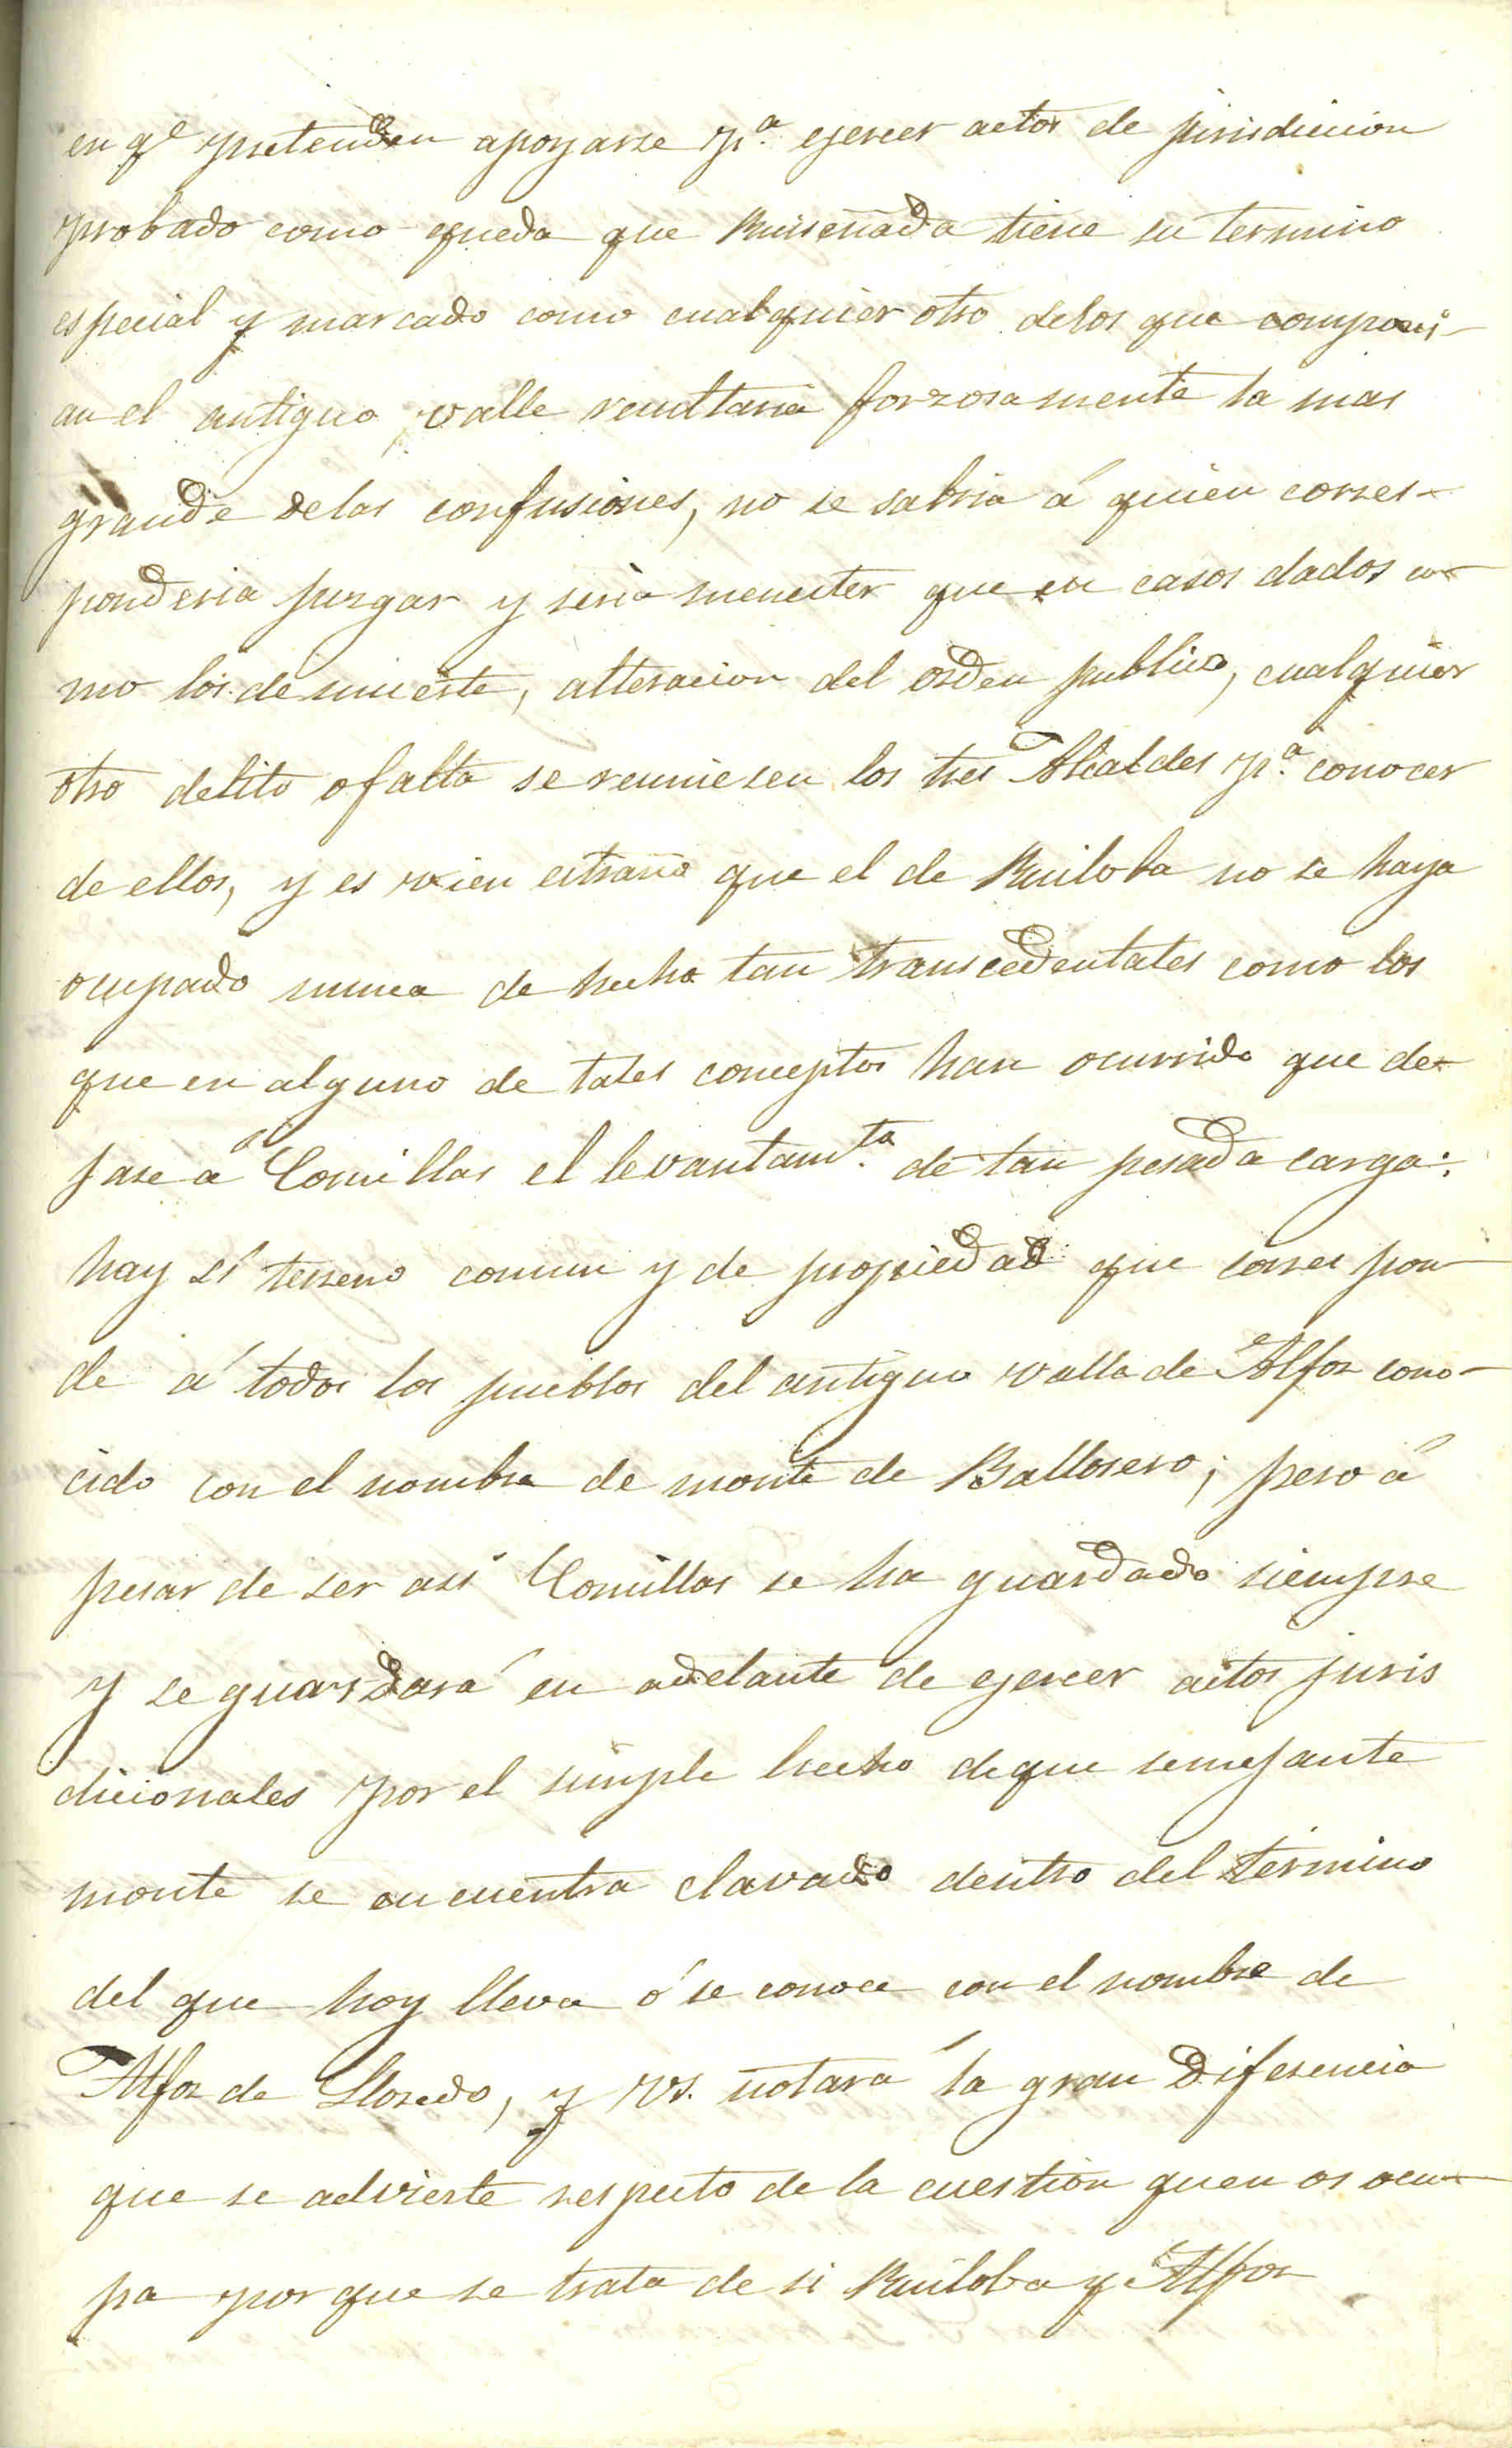 en qe pretenden apoyarse pa. ejercer actos de jurisdicion
probado como queda que Ruiseñada tiene su termino
especial y marcado como cualquier otro delos que componi-
an el antiguo valle resultaria forzosamente la mas
grande delas confusiones, no se sabria á quien corres-
ponderia juzgar y seria menester que en casos dados co-
mo los de muerte, alteracion del orden publico, cualquier
otro delito o falta se reuniesen los tres Alcaldes pa. conocer
de ellos, y es vien estraño que el de Ruiloba no se haya
ocupado nunca de hecho tan transcedentales como los
que en alguno de tales conceptos han ocurrido que de-
jase á Comillas el levantamto. de tan pesada carga:
hay sí terreno comun y de propiedad que corres pon-
de á todos los pueblos del antiguo valle de Alfoz cono-
cido con el nombre de monte de Ballosero; pero á
pesar de ser asi Comillas se ha guardado siempre
y se guardará en adelante de ejercer actos juris
dicionales por el simple hecho deque semejante
monte se encuentra clavado dentro del término
del que hoy lleva ó se conoce con el nombre de
Alfoz de Lloredo, y VS. notará la gran diferencia
que se advierte respecto de la cuestion quen os ocu-
pa por que se trata de si Ruiloba y Alfoz